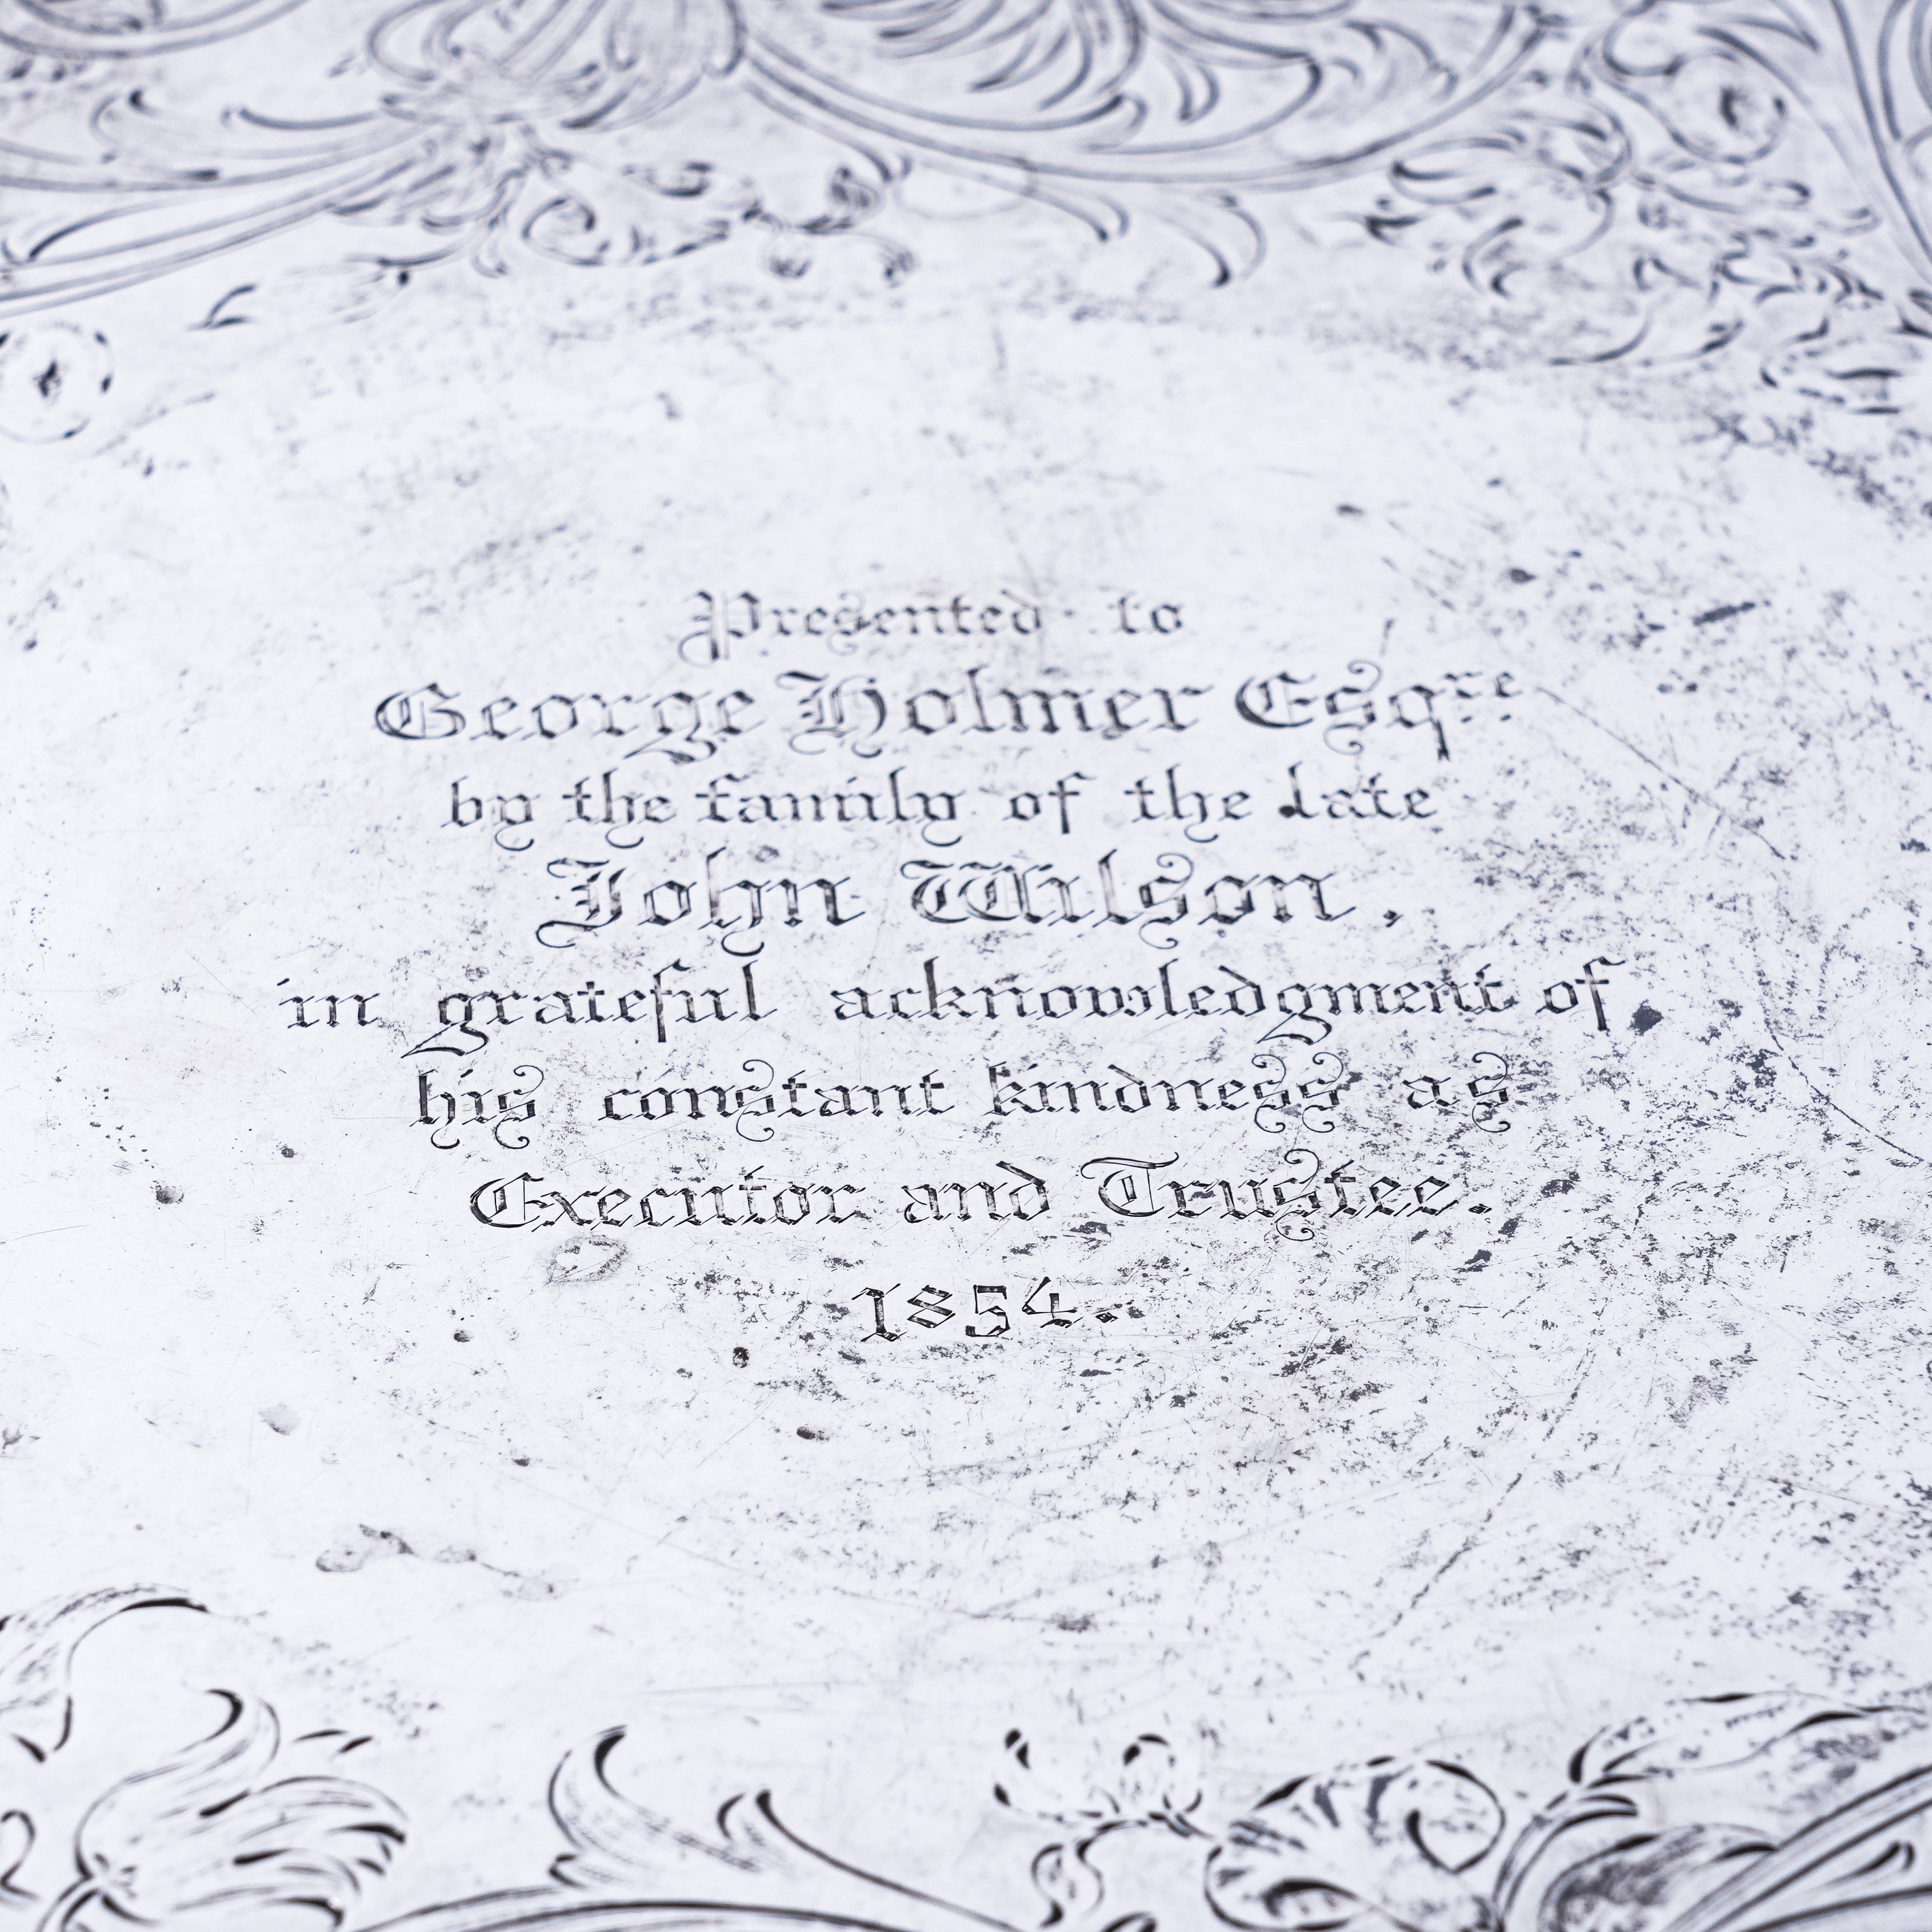 Presented to
George Holmer Esqre
by the family of the late
John Wilson,
in grateful acknowledgment of
his constant kindness as
Executor and Trustee.
1854.